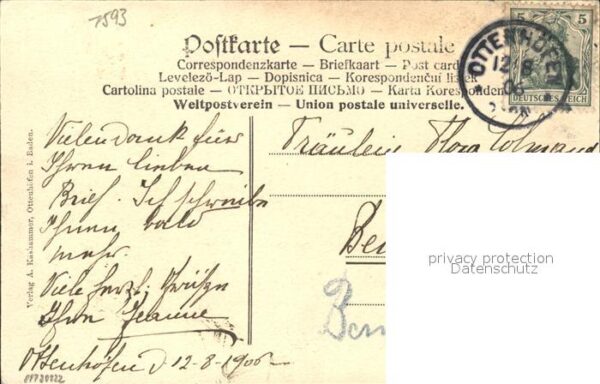 7593
Postkarte — Carte postale
Correspondenzkarte — Briefkaart — Post card
Levelező-Lap — Dopisnica — Korespondenční lístek
Cartolina postale — ОТКРЫТОЕ ПИСЬМО — Karta Koresponden
Weltpostverein — Union postale universelle.
5 5
DEUTSCHES REICH
OTTENHÖFEN
12 8
06
Verlag A. Käshammer, Ottenhöfen i. Baden.
Vielen Dank für
Ihren lieben
Brief. Ich schreibe
Ihnen bald
mehr.
Viele herzl. Grüße
Ihre Jeanne
Ottenhöfen d 12-8-1906
Fräulein Flora
privacy protection
Datenschutz